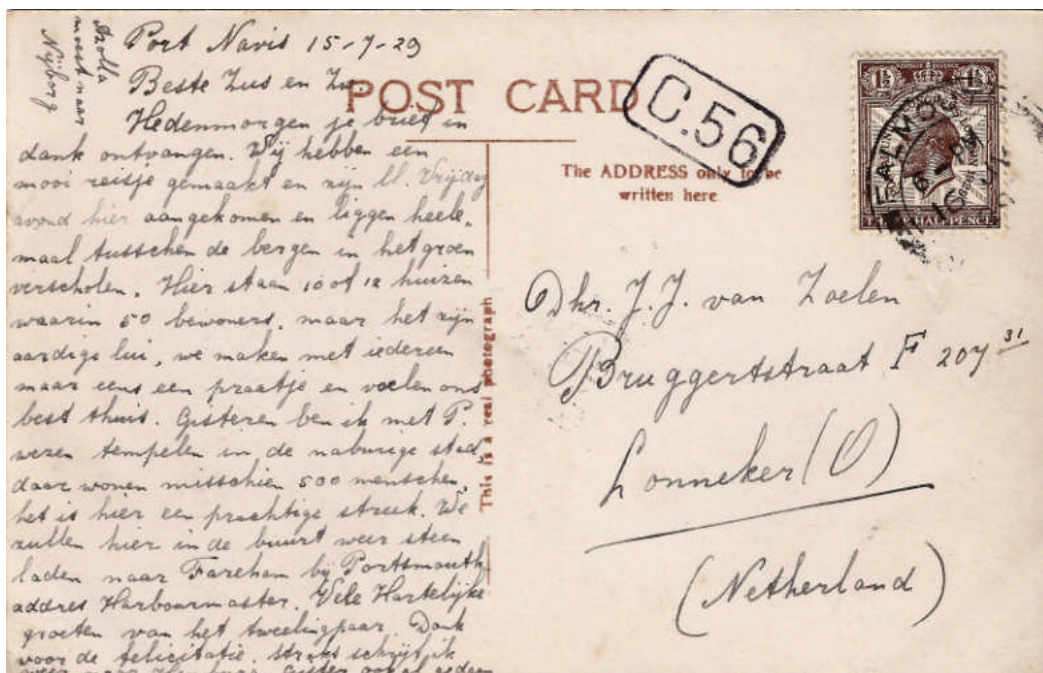 Azolla
moest naar
Nijborg
Port Navis 15-7-29
Beste Zus en Zw.
Hedenmorgen je brief in
dank ontvangen. Wij hebben een
mooi reisje gemaakt en zijn ll. Vrijdag
avond hier aangekomen en liggen heele-
maal tusschen de bergen in het groen
verscholen. Hier staan 10 of 12 huizen
waarin 50 bewoners, maar het zijn
aardige lui, we maken met iedereen
maar eens een praatje en voelen ons
best thuis. Gisteren ben ik met P.
wezen tempelen in de naburige stad,
daar wonen misschien 500 menschen,
het is hier een prachtige streek. We
zullen hier in de buurt weer steen
laden naar Fareham bij Portsmouth
addres Harbourmaster. Vele Hartelijke
groeten van het tweelingpaar. Dank
voor de felicitatie, straks schrijf ik
weer naar
POST CARD
C.56
The ADDRESS only to be
written here.
This is a real photograph
1½ 1½
HALFPENCE
Dhr. J. J. van Zoelen
Bruggertstraat F 207 31
Lonneker (O)
(Netherland)